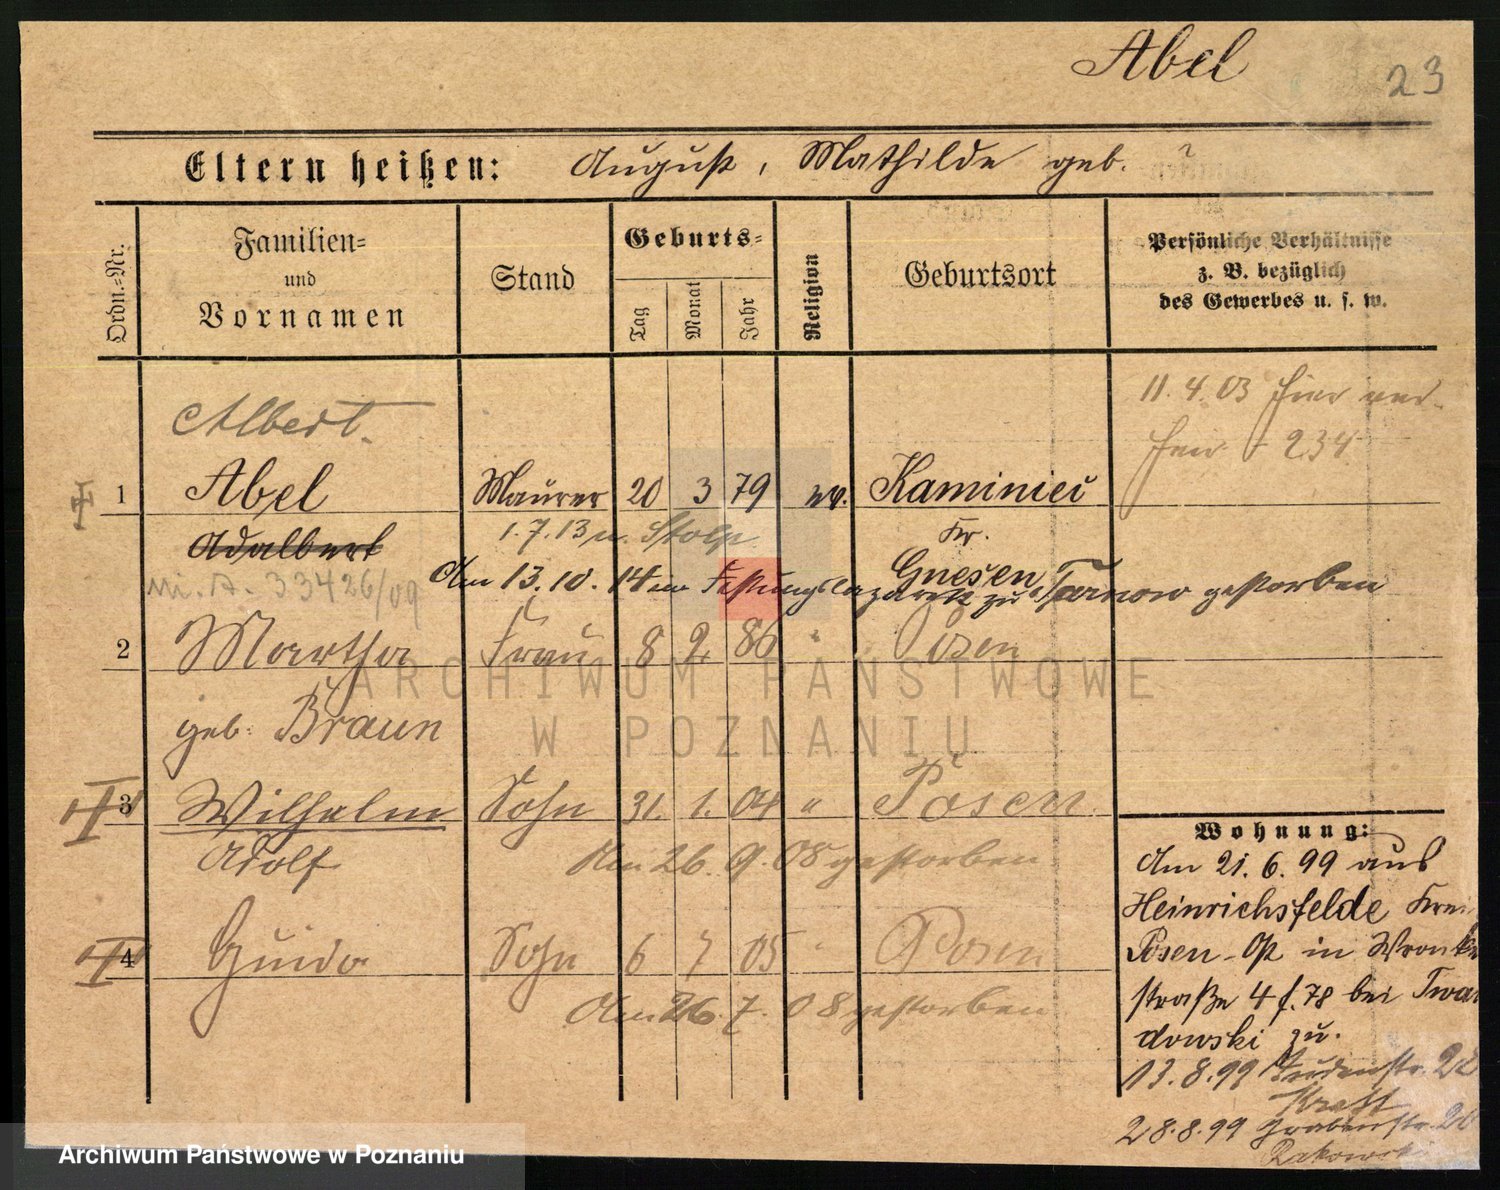 Abel 23
Eltern heißen: August, Mathilde geb. ?
Ordn.-Nr.
Familien-
und
Vornamen
Stand
Geburts-
Tag
Monat
Jahr
Religion
Geburtsort
Persönliche Verhältnisse
z. B. bezüglich
des Gewerbes u. s. w.
11.4.03 hier
234
Albert.
1 Abel Maurer 20 3 79 ev. Kaminiec
Adalbert 1.7.13 n. Stolp Kr.
Gnesen
M. A. 33426/09
Am 13.10.14 im Festungslazarett zu Tarnow gestorben
2 Martha Frau 8 2. 86 " Posen
geb. Braun
3 Wilhelm Sohn 31. 1. 04 " Posen
Adolf Am 26. 9. 08 gestorben
4 Guido Sohn 6 7 05 " Posen
Am 26. 7. 08 gestorben
Wohnung:
Am 21.6.99 aus
Heinrichsfelde
Posen-Ost in Wronker
straße 4 b. Twar
dowski zu.
13.8.99
Kraft
28.8.99 Grabenstr.
Rakowski
ARCHIWUM PAŃSTWOWE
W POZNANIU
Archiwum Państwowe w Poznaniu